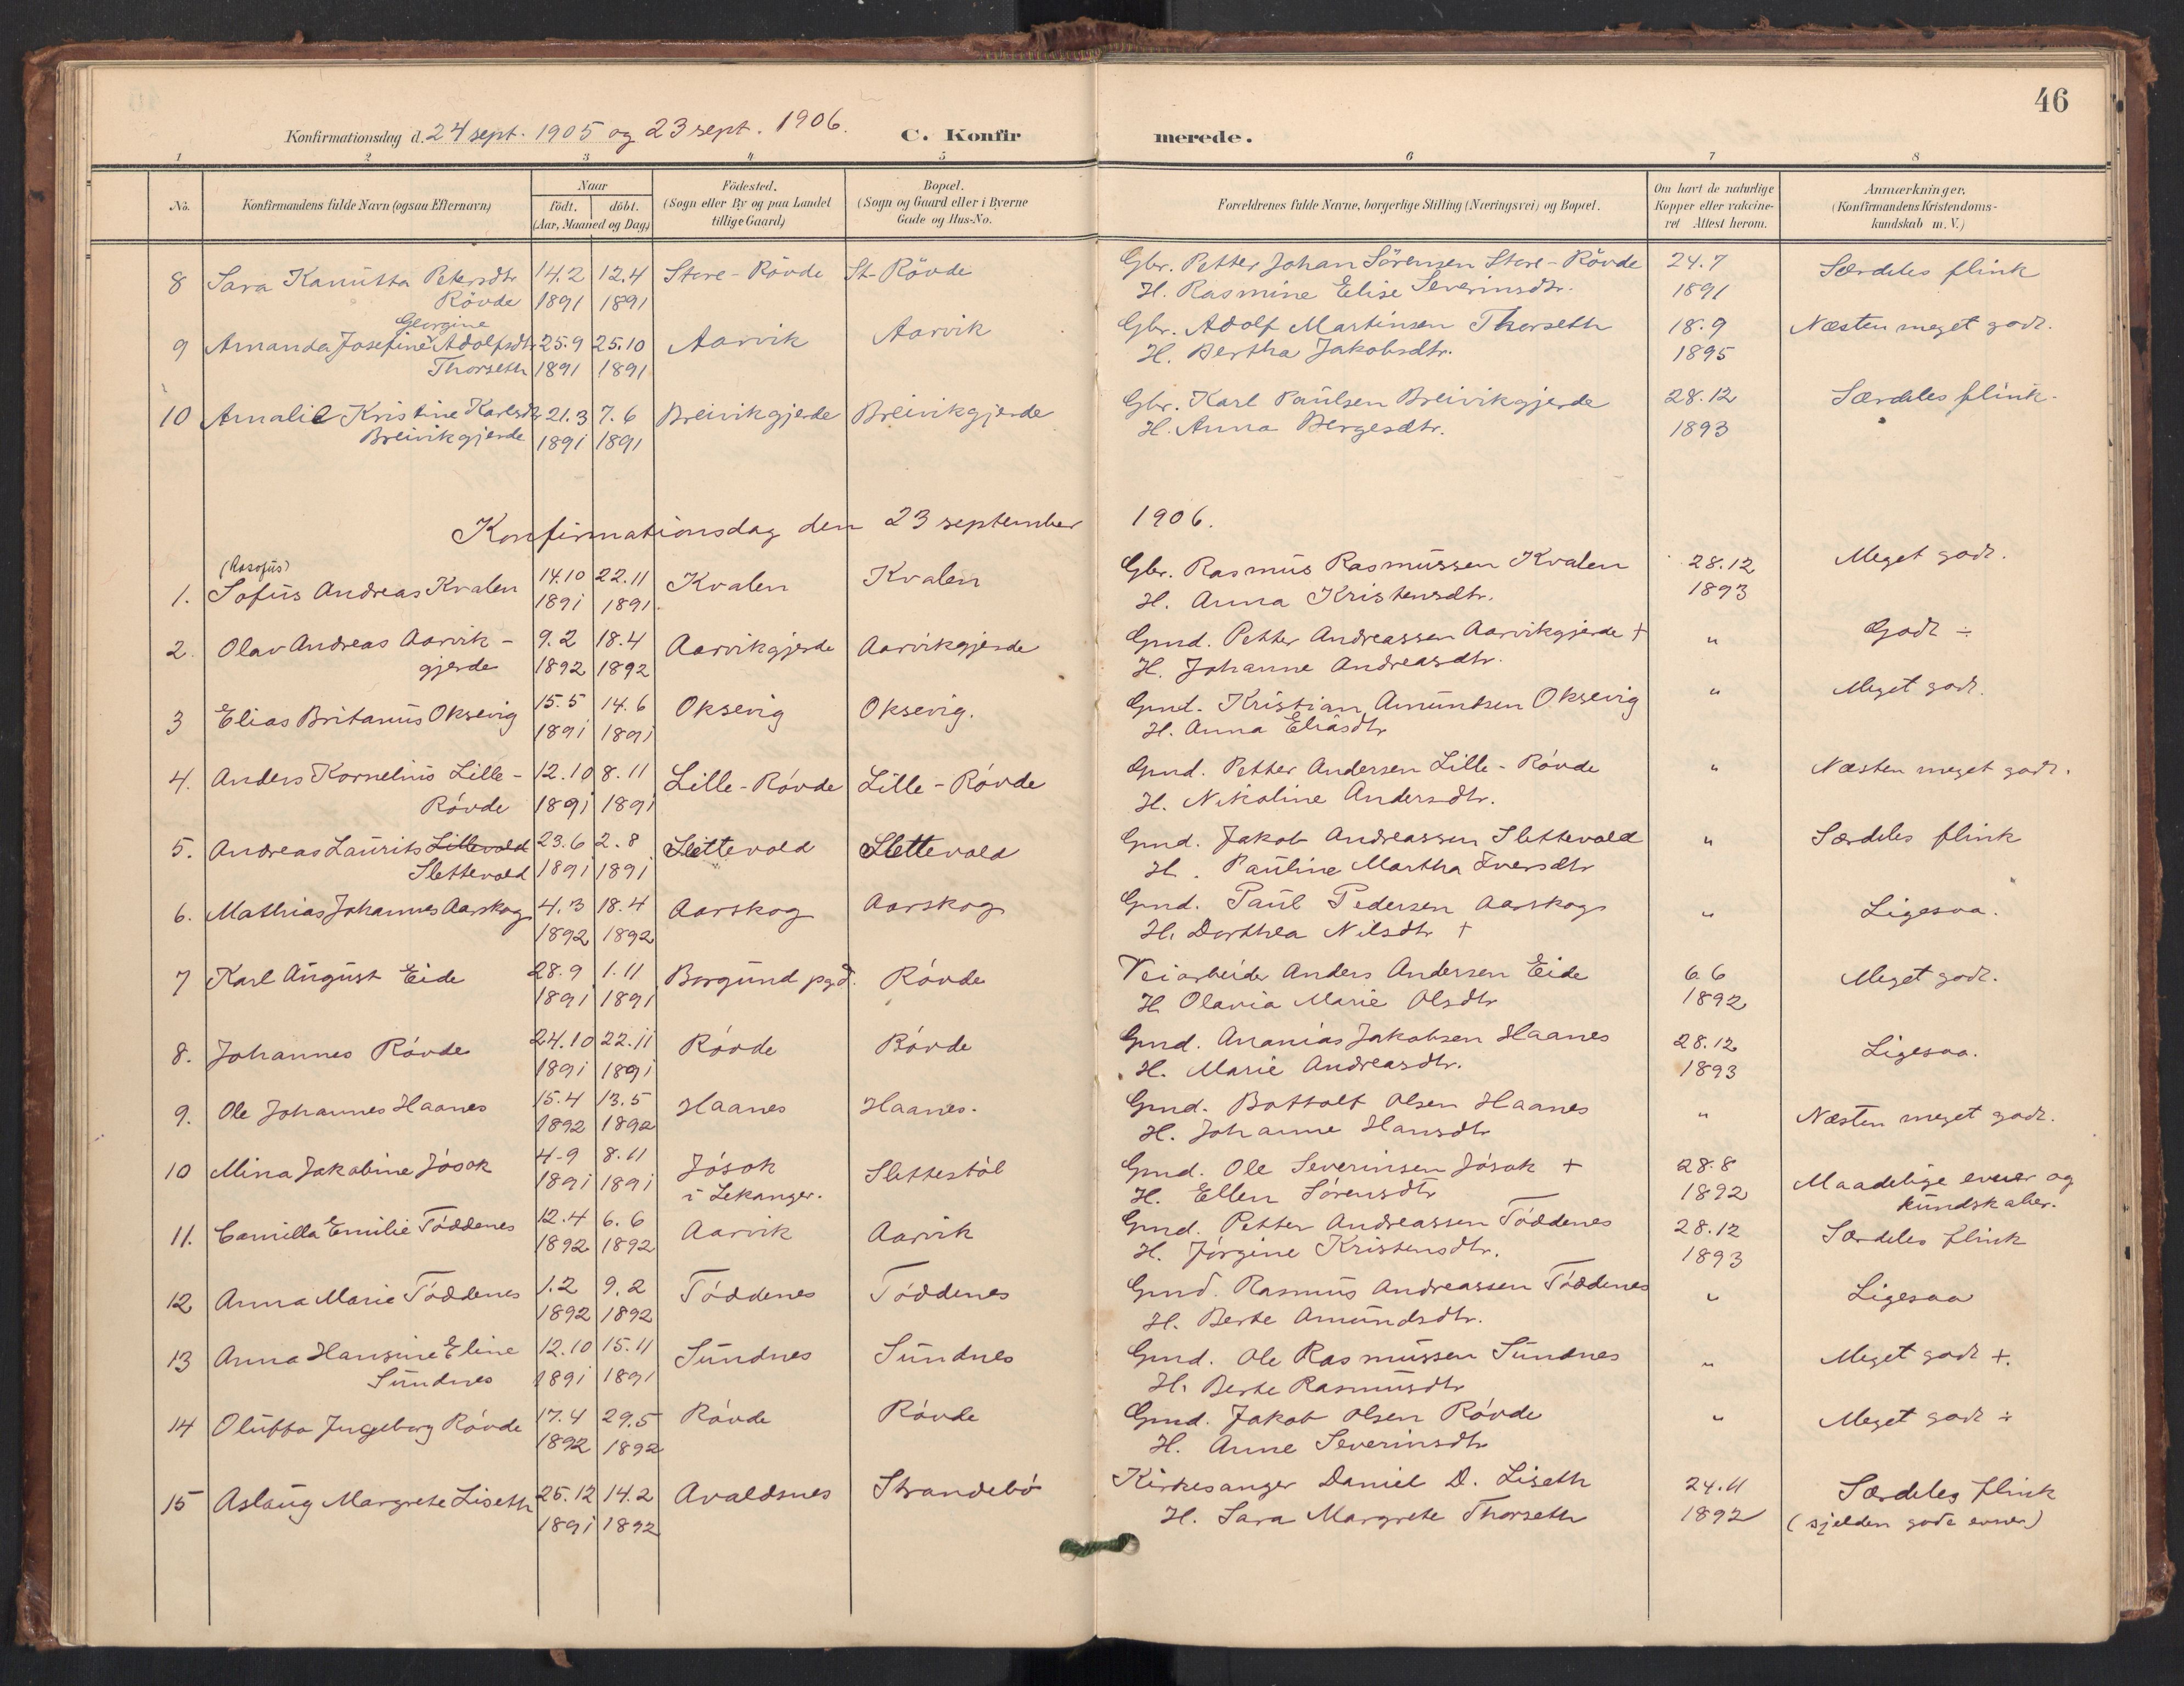 46
Konfirmationsdag d. 24 sept. 1905 og 23 sept. 1906.
C. Konfirmerede.
1 2 3 4 5 6 7 8
No.
Konfirmandens fulde Navn (ogsaa Efternavn)
Naar
Födt. döbt.
(Aar, Maaned og Dag)
Födested.
(Sogn eller By og paa Landet
tillige Gaard)
Bopæl.
(Sogn og Gaard eller i Byerne
Gade og Hus-No.
Forældrenes fulde Navne, borgerlige Stilling (Næringsvei) og Bopæl.
Om havt de naturlige
Kopper eller vakcine-
ret Attest herom.
Anmærkninger,
(Konfirmandens Kristendoms-
kundskab m. V.)
8 Sara Kanutta Petersdtr 14.2 12.4 Store-Rövde St-Rövde Gbr. Petter Johan Sörensen Store-Rövde 24.7 Særdeles flink
Rövde 1891 1891 H. Rasmine Elise Severinsdtr. 1891
Georgine
9 Amanda Josefine Adolfsdtr 25.9 25.10 Aarvik Aarvik Gbr. Adolf Martinsen Thorseth 18.9 Næsten meget godt.
Thorseth 1891 1891 H. Bertha Jakobsdtr. 1895
10 Amalie Kristine Karlsdtr 21.3 7.6 Breivikgjerde Breivikgjerde Gbr. Karl Paulsen Breivikgjerde 28.12 Særdeles flink.
Breivikgjerde 1891 1891 H. Anna Børgesdtr. 1893
Konfirmationsdag den 23 september 1906.
(Rosofus)
1. Sofus Andreas Kvalen 14.10 22.11 Kvalen Kvalen Gbr. Rasmus Rasmussen Kvalen 28.12 Meget godt.
1891 1891 H. Anna Kristensdtr. 1893
2. Olav Andreas Aarvik- 9.2 18.4 Aarvikgjerde Aarvikgjerde Gmd. Petter Andreassen Aarvikgjerde + " Godt ÷
gjerde 1892 1892 H. Johanne Andreasdtr.
3 Elias Britanus Oksevig 15.5 14.6 Oksevig Oksevig. Gmd. Kristian Amundsen Oksevig " Meget godt.
1891 1891 H. Anna Eliasdtr
4. Anders Kornelius Lille- 12.10 8.11 Lille-Róvde Lille-Róvde Gmd. Petter Andersen Lille-Róvde " Næsten meget godt.
Róvde 1891 1891 H. Nikoline Andersdtr.
5. Andreas Laurits Lillevold 23.6 2.8 Slettevold Slettevold Gmd. Jakob Andreassen Slettevold " Særdeles flink
Slettevold 1891 1891 H. Pauline Martha Iversdtr
6. Mathias Johannes Aarskog 4.3 18.4 Aarskog Aarskog Gmd. Paul Pedersen Aarskog " Ligesaa.
1892 1892 H. Dorthea Nilsdtr +
7 Karl August Eide 28.9 1.11 Borgund pgd. Róvde Veiarbeider Anders Andersen Eide 6.6 Meget godt.
1891 1891 H Olavia Marie Olsdtr 1892
8. Johannes Róvde 24.10 22.11 Róvde Róvde Gmd. Ananias Jakobsen Haanes 28.12 Ligesaa.
1891 1891 H. Marie Andreasdtr. 1893
9. Ole Johannes Haanes 15.4 13.5 Haanes Haanes. Gmd. Bottolf Olsen Haanes " Næsten meget godt.
1892 1892 H. Johanne Hansdtr
10 Mina Jakobine Jósok 4-9 8.11 Jósok Slettestól Gmd. Ole Severinsen Jósok + 28.8 Maadelige evner og
1891 1891 i Lekanger. H. Ellen Sórensdtr 1892 kundskaber.
11. Camilla Emilie Tóddenes 12.4 6.6 Aarvik Aarvik Gmd. Petter Andreassen Tóddenes 28.12 Særdeles flink
1892 1892 H. Jórgine Kristensdtr. 1893
12 Anna Marie Tóddenes 1.2 9.2 Tóddenes Tóddenes Gmd. Rasmus Andreassen Tóddenes " Ligesaa
1892 1892 H. Berte Amundsdtr.
13 Anna Hansine Eline 12.10 15.11 Sundnes Sundnes Gmd. Ole Rasmussen Sundnes " Meget godt +.
Sundnes 1891 1891 H. Berte Rasmusdtr
14 Olutta Ingeborg Róvde 17.4 29.5 Róvde Róvde Gmd. Jakob Olsen Róvde " Meget godt ÷
1892 1892 H. Anne Severinsdtr
15 Aslaug Margrete Liseth 25.12 14.2 Avaldsnes Strandebó Kirkesanger Daniel D. Liseth 24.11 Særdeles flink
1891 1892 H. Sara Margrete Thorseth 1892 (sjelden gode evner)